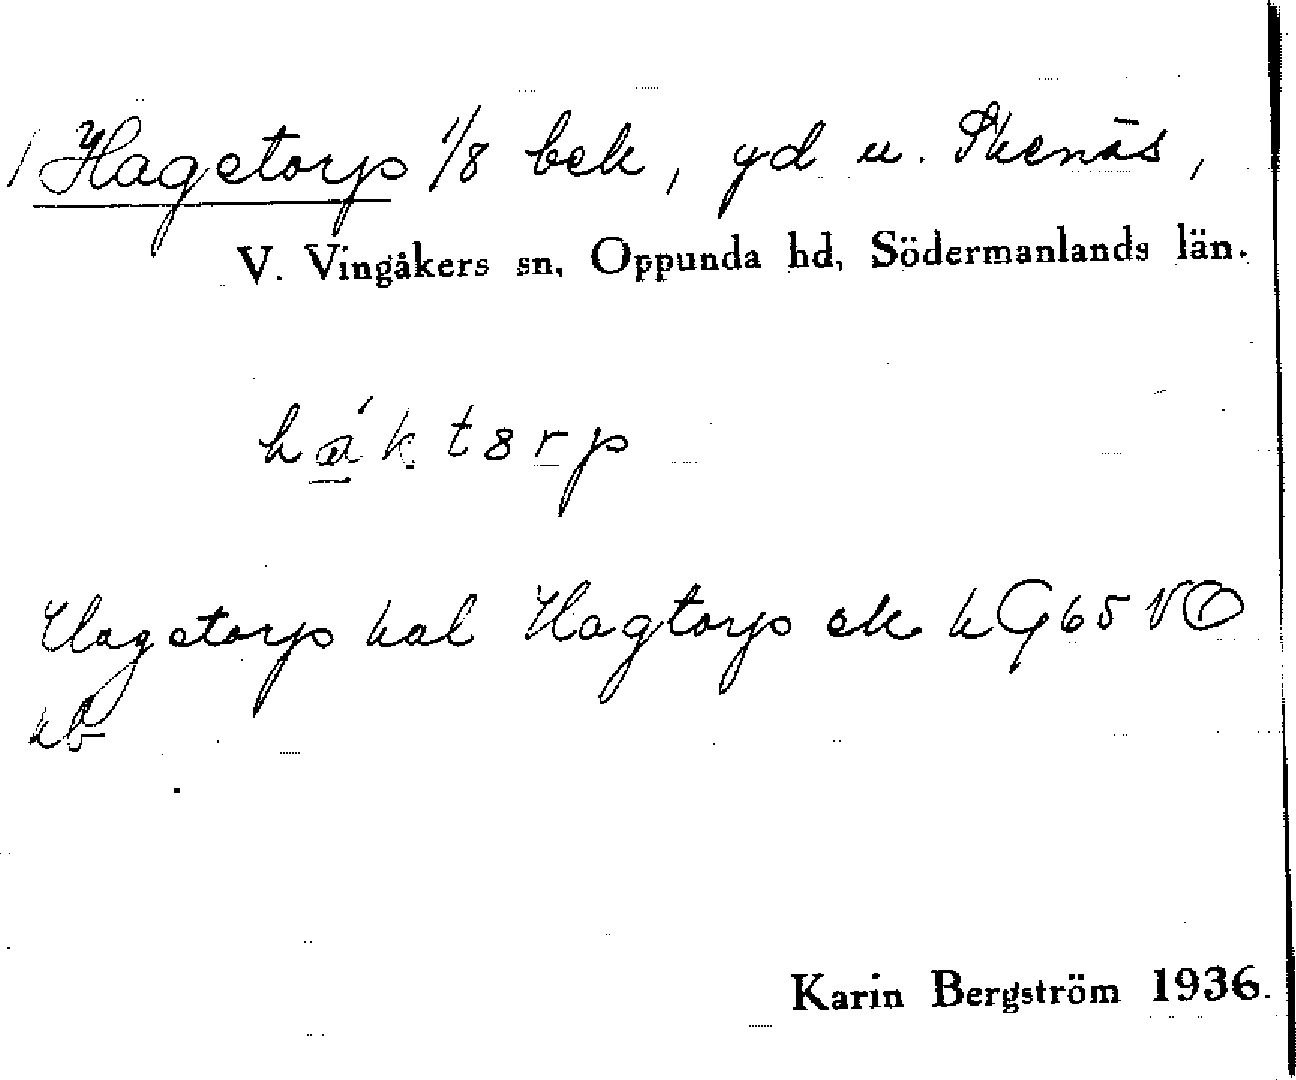 Hagetorp 1/8 bek, gd u. Skenäs,
V. Vingåkers sn, Oppunda hd, Södermanlands län.
háktorp
Hagetorp kal Hagtorp ek kG65 NO
kb
Karin Bergström 1936.